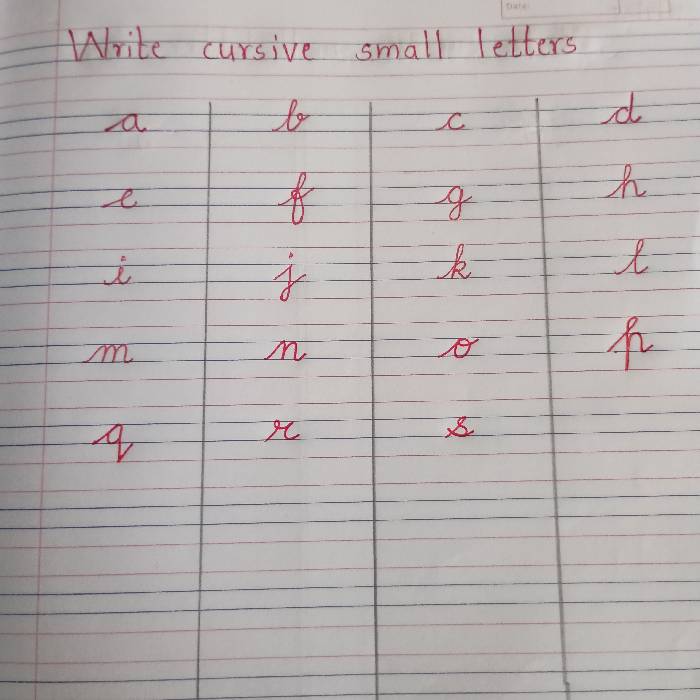 Date
Write cursive small letters
a b c d
e f g h
i j k l
m n o p
q r s